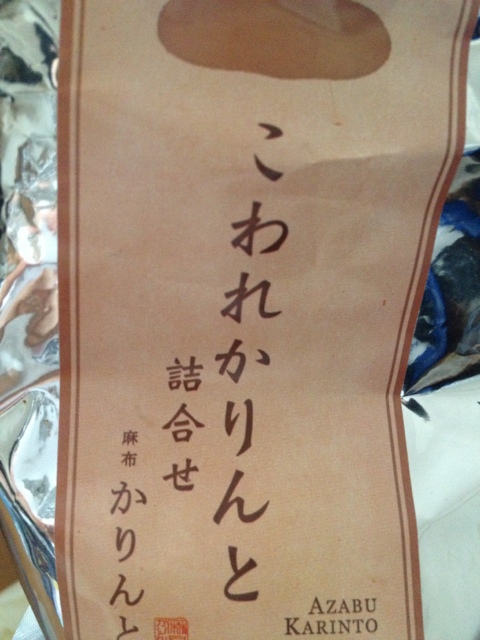 こわれかりんと
詰合せ
麻布
かりんと
AZABU
KARINTO